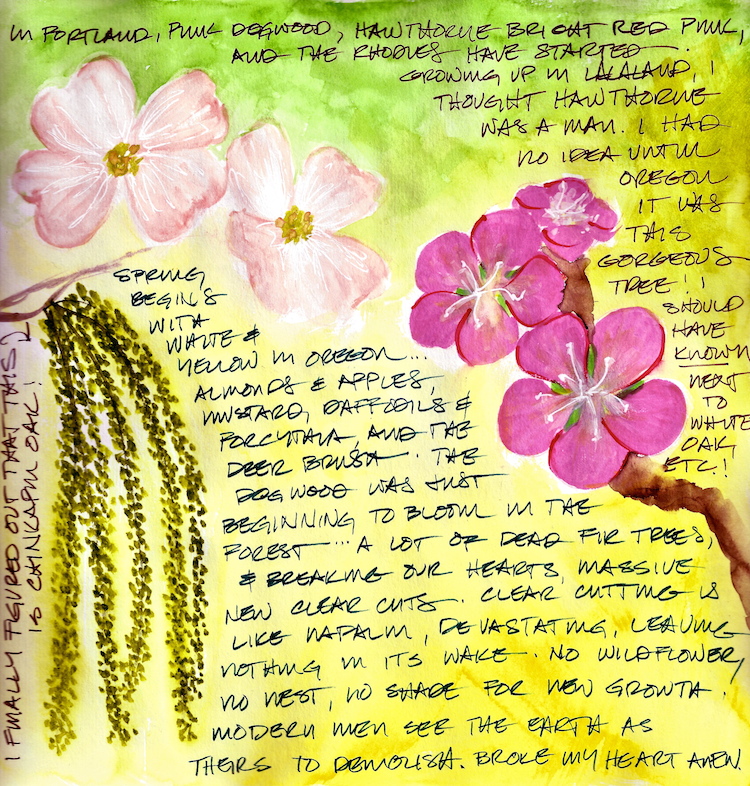 IN PORTLAND, PINK DOGWOOD, HAWTHORNE BRIGHT RED PINK,
AND THE RHODIES HAVE STARTED.
GROWING UP IN LALALAND, I
THOUGHT HAWTHORNE
WAS A MAN. I HAD
NO IDEA UNTIL
OREGON
IT WAS
THIS
GORGEOUS
TREE! I
SHOULD
HAVE
KNOWN
NEXT
TO
WHITE
OAK,
ETC.!
SPRING
BEGINS
WITH
WHITE &
YELLOW IN OREGON...
ALMONDS & APPLES,
MUSTARD, DAFFODILS &
FORCYTHIA, AND THE
DEER BRUSH. THE
DOGWOOD WAS JUST
BEGINNING TO BLOOM IN THE
FOREST... A LOT OF DEAD FIR TREES,
& BREAKING OUR HEARTS, MASSIVE
NEW CLEAR CUTS. CLEAR CUTTING IS
LIKE NAPALM, DEVASTATING, LEAVING
NOTHING IN ITS WAKE. NO WILDFLOWER,
NO NEST, NO SHADE FOR NEW GROWTH.
MODERN MEN SEE THE EARTH AS
THEIRS TO DEMOLISH. BROKE MY HEART ANEW.
I FINALLY FIGURED OUT THAT THIS
IS CHINKAPIN OAK!